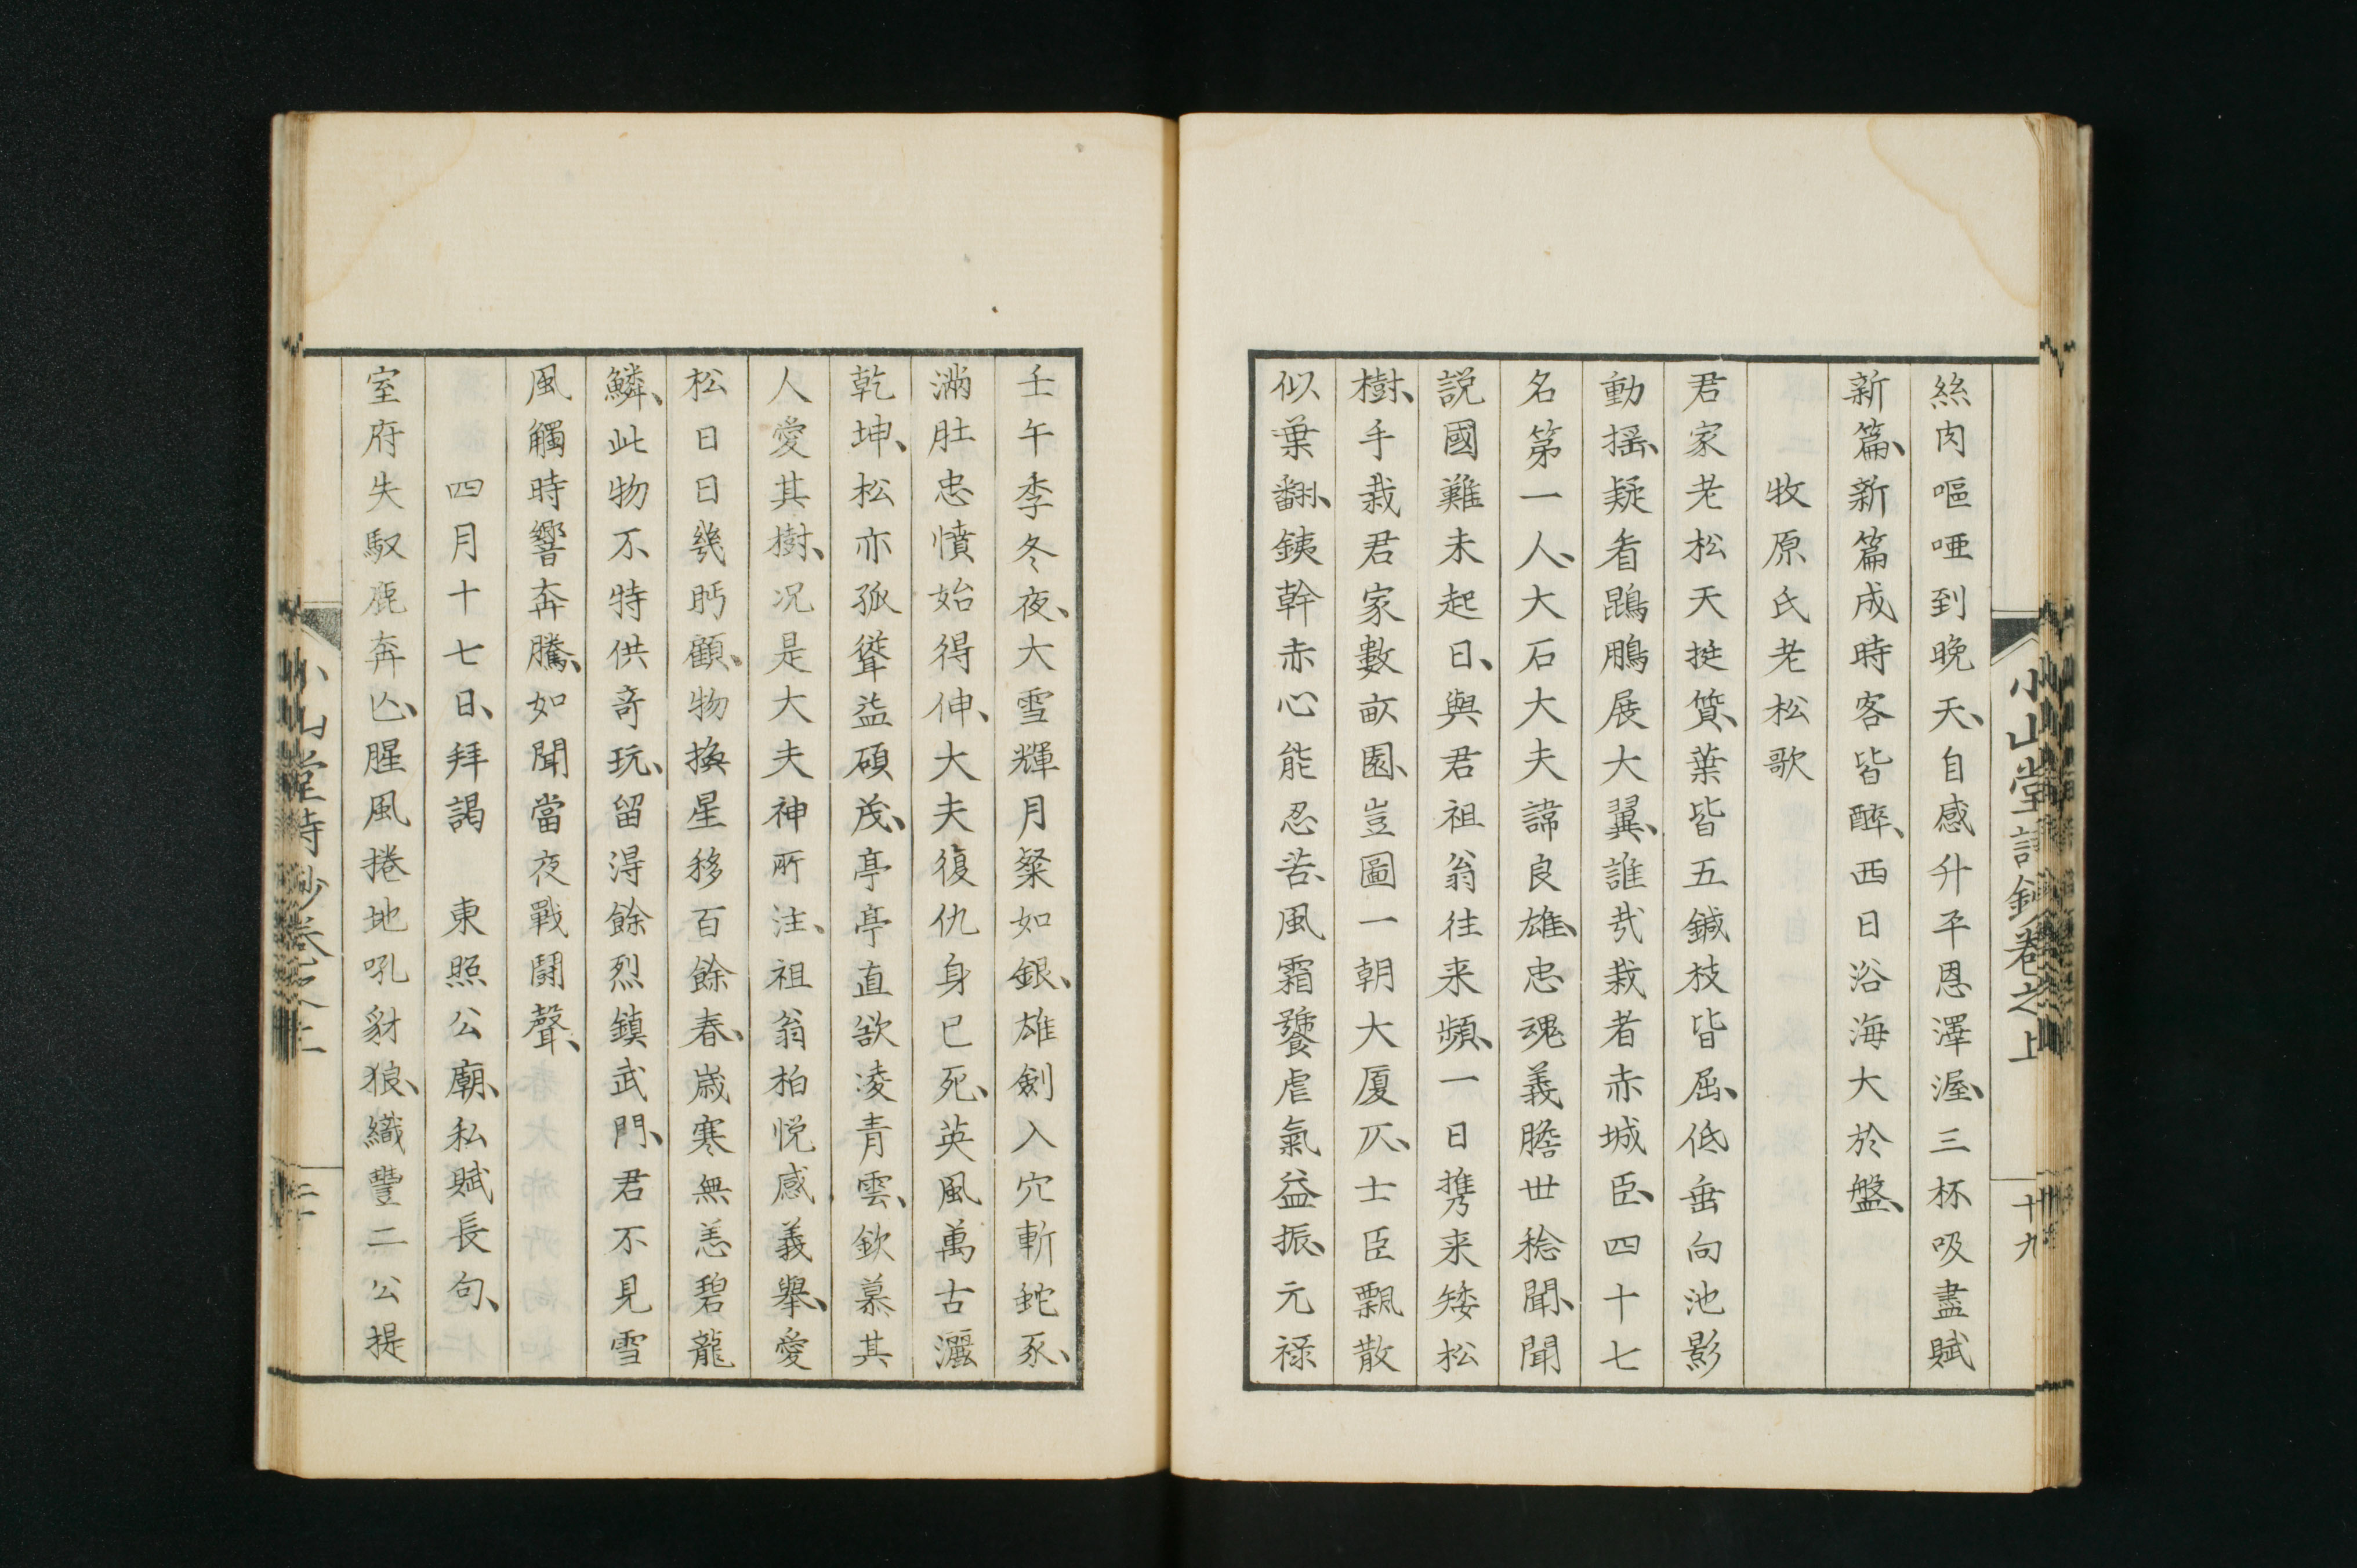 小山堂詩鈔卷之上
十九
絲肉嘔啞到晚天、自感升平恩澤渥、三杯吸盡賦
新篇、新篇成時客皆醉、西日浴海大於盤、
牧原氏老松歌
君家老松天挺質、葉皆五鍼枝皆屈、低垂向池影
動搖、疑看鵾鵬展大翼、誰哉栽者赤城臣、四十七
名第一人、大石大夫諱良雄、忠魂義膽世稔聞、聞
説國難未起日、與君祖翁往来頻、一日携来矮松
樹、手栽君家數畝園、豈圖一朝大厦仄、士臣飄散
似葉翻、銕幹赤心能忍苦、風霜饕虐氣益振、元祿
壬午季冬夜、大雪輝月粲如銀、雄劍入穴斬蛇豕、
滿肚忠憤始得伸、大夫復仇身已死、英風萬古灑
乾坤、松亦孤聳益碩茂、亭亭直欲凌青雲、欽慕其
人愛其樹、况是大夫神所注、祖翁柏悦感義舉、愛
松日日幾眄顧、物換星移百餘春、歳寒無恙碧龍
鱗、此物不特供奇玩、留得餘烈鎮武門、君不見雪
風觸時響奔騰、如聞當夜戰鬪聲、
四月十七日、拜謁　東照公廟、私賦長句、
室府失馭鹿奔亾、腥風捲地吼豺狼、織豐二公提
小山堂詩鈔卷之上